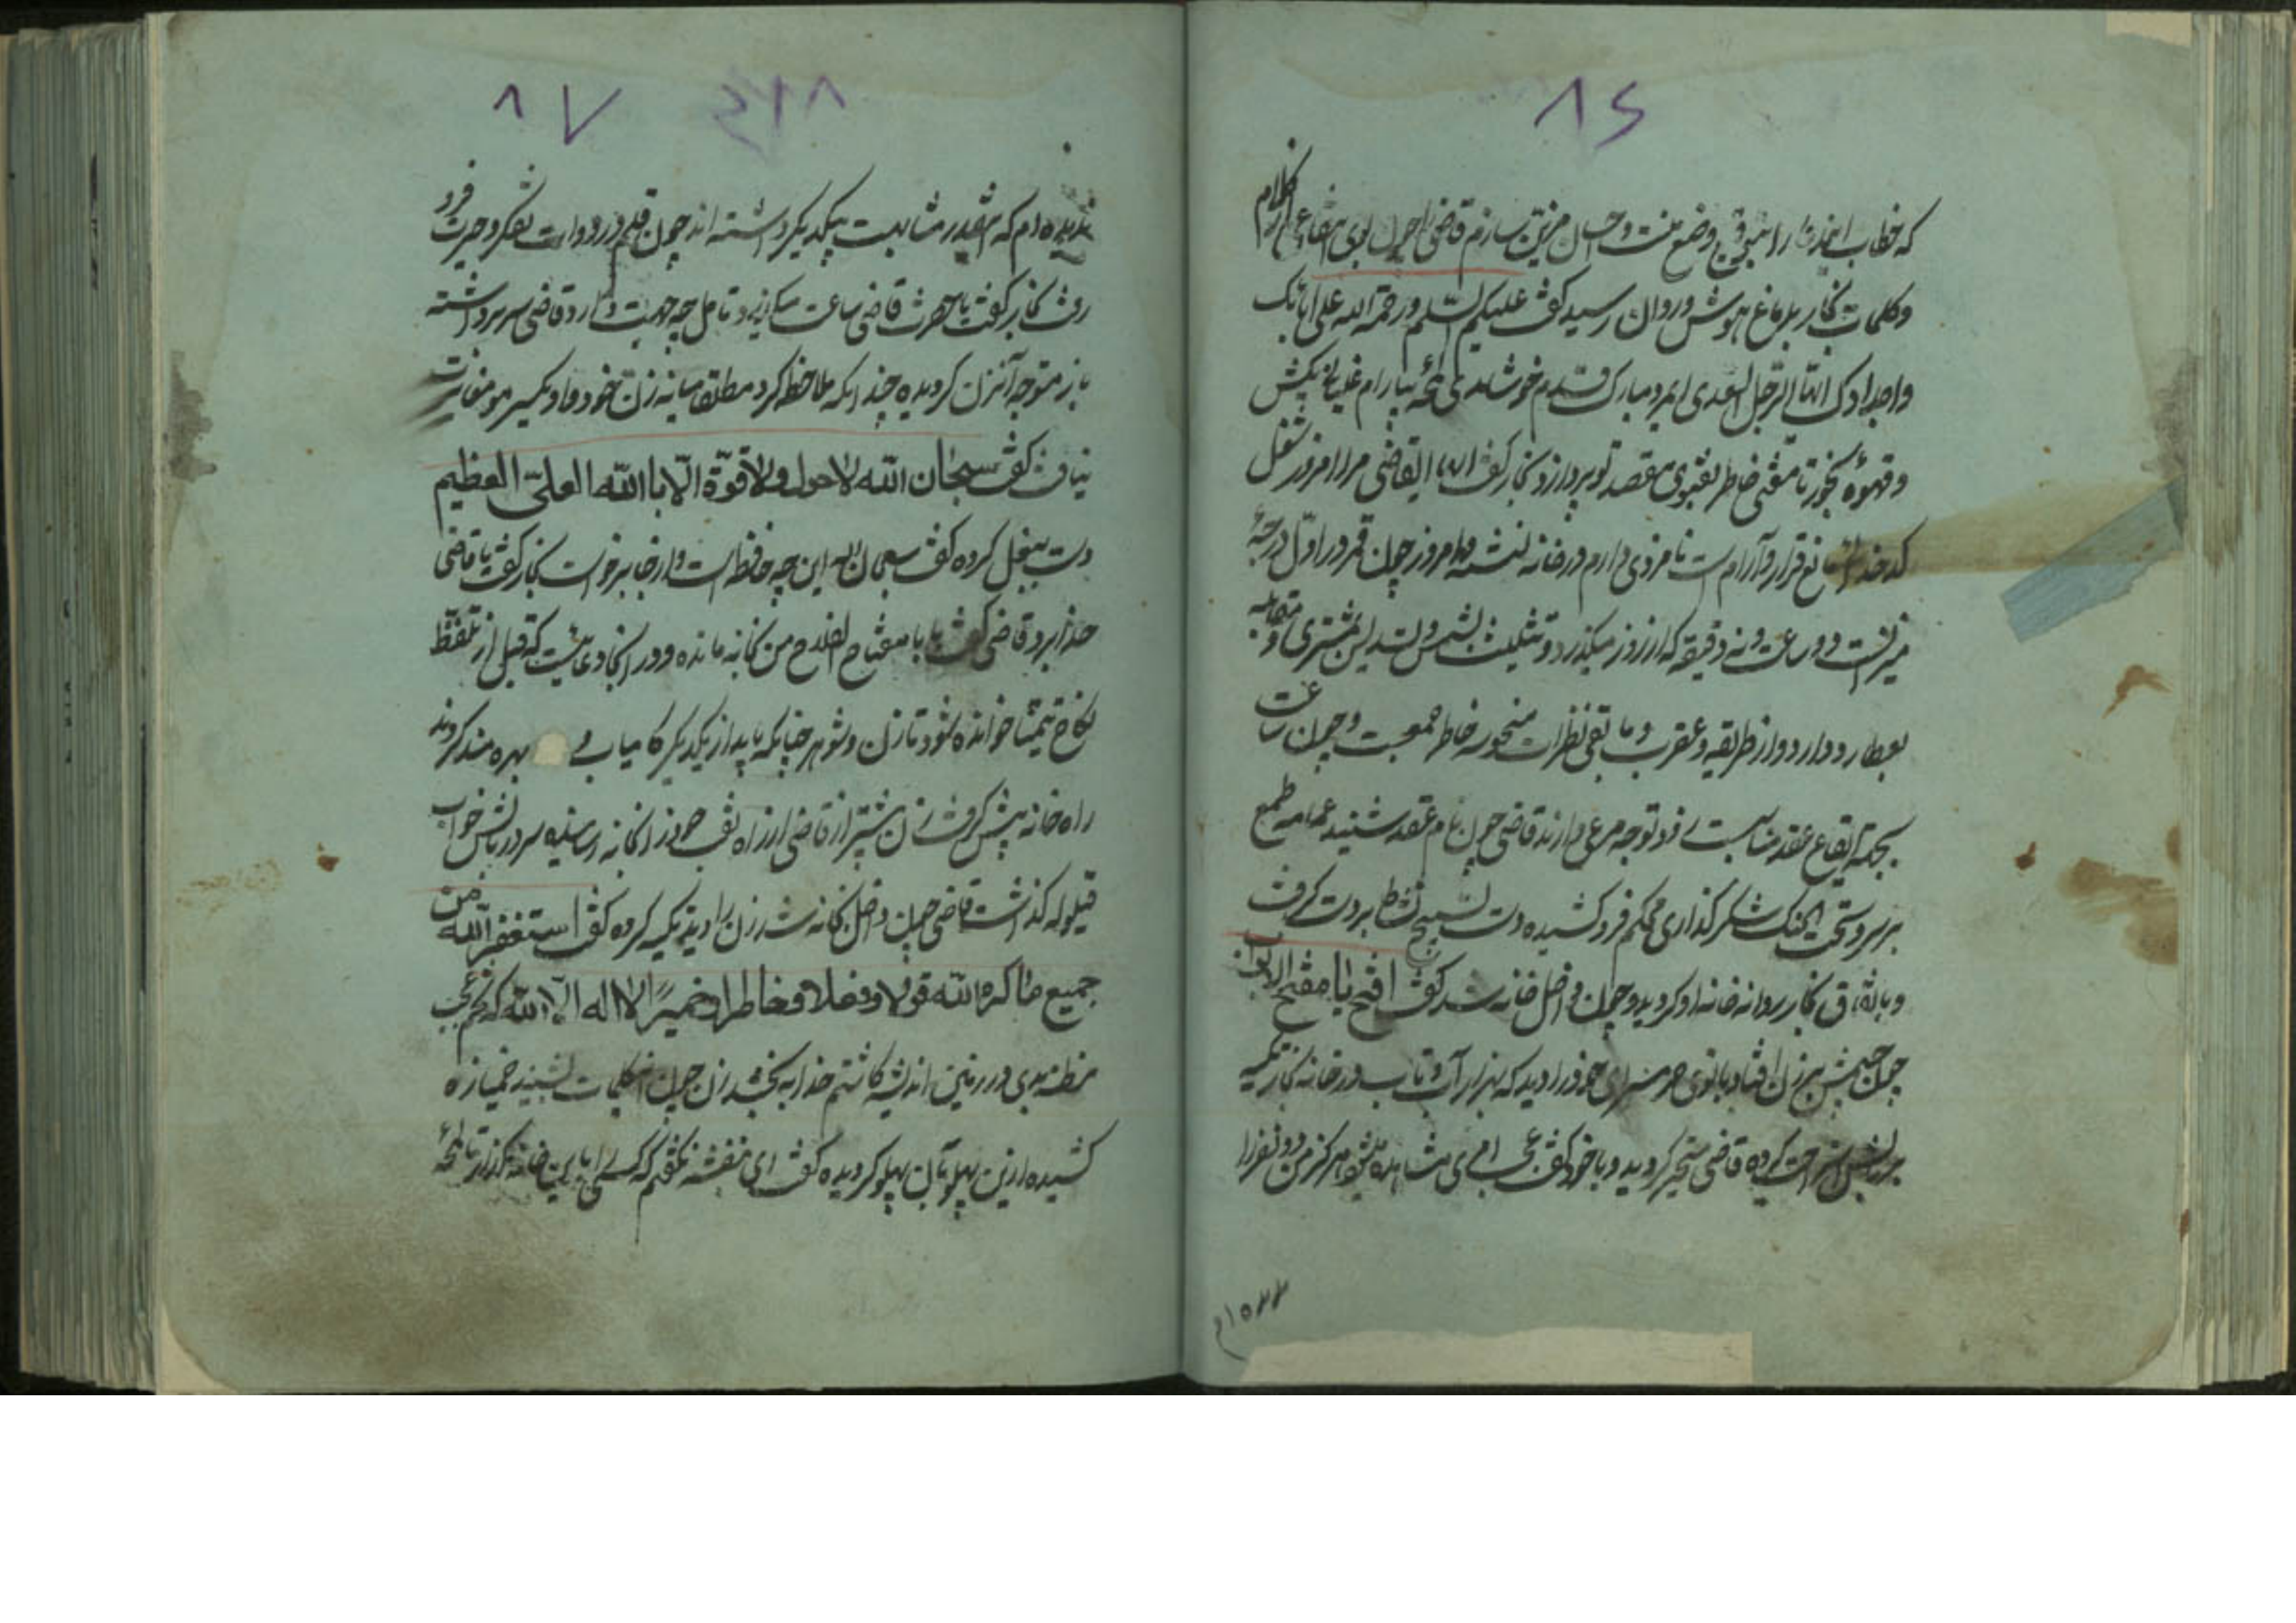 ۸۶
وکلمات نجار بدماغ هوش و روان رسید گفت علیکم السلم و رحمة الله علی آبائک
واجدادک ایها الرجل السعدی ایمرد مبارک قدم خوش آمدی لمحهٔ بیارام غلیانی بکش
و قهوهٔ بخور تا مقتی خاطر بفتوی مقصد تو پردازد نجار گفت ایها القاضی مرا امروز شغل
کدخدائی مانع قرار و آرام است نامزدی دارم در خانه نشسته و امروز چون قمر در اول درجهٔ
میزانست و دو ساعت و نه دقیقه که از روز میگذرد و تثلیث شمس و تسدیس مشتری و مقابله
بعطارد دارد و از طریقه و عقرب و مابقی نظرات منحوسه خاطر جمعیست و چون ساعت
بجهة ایقاع عقد مناسبت دارد توجه مرعی دارند قاضی چون نام عقد شنید عمامه طمع
بر سر و تحت الحنک شکر گذاری محکم فرو کشیده دست تسبیح نشاط بر دست گرفت
و باتفاق نجار روانه خانه او گردید و چون داخل خانه شد گفت افتح یا مفتح الابواب
چون چشمش بر زن افتاد بانوی حرمسرای خود را دید که بهزار آب و تاب در خانه نجار تکیه
بر بالش استراحت کرده قاضی متحیر گردید و با خود گفت عجب امری مشاهده میشود هرگز من دو نفر را
۲۱۵۴۴
۸۷
ندیده‌ام که اینقدر مشابهت بیکدیگر داشته اند چون قلم در دوات تفکر و حیرت فرو
رفت نجار گفت یا حضرت قاضی ساعت میگذرد تامل چه جهت دارد قاضی سر برداشته
باز متوجه آنزن گردیده چندانکه ملاحظه کرد مطلقا میانه زن خود و او یکسر مو مغایرت
نیافت گفت سبحان الله لا حول ولا قوّة الّا باالله العلیّ العظیم
دست ببغل کرده گفت سبحان الله این چه حافظه است و از جا برخواست نجار گفت یا قاضی
خدا برد قاضی گفت بابا مفتاح الفلاح من بخانه مانده و در آنجا دعائیست که قبل از تلفظ
نکاح تیمنا خوانده شود تا زن و شوهر چنانکه باید از یکدیگر کامیاب و بهره مند گردند
راه خانه پیش گرفت زن پیشتر از قاضی از راه نقب خود را بخانه رسانیده سر در بالش خواب
قیلوله گذاشت قاضی چون داخل بخانه شد زن را دید تکیه کرده گفت استغفر الله من
جمیع ما کره الله قولا و فعلا و خاطرا و ضمیرًا لا اله الّا الله که تخم عجب
مظنه بدی در زمین اندیشه کاشتم خدا ببخشد زن چون این کلمات شنید خمیازه
کشیده از این پهلو بآن پهلو گردیده گفت ای بنفشه نگفتم که کسی را باین خانه مگذار تا لمحهٔ